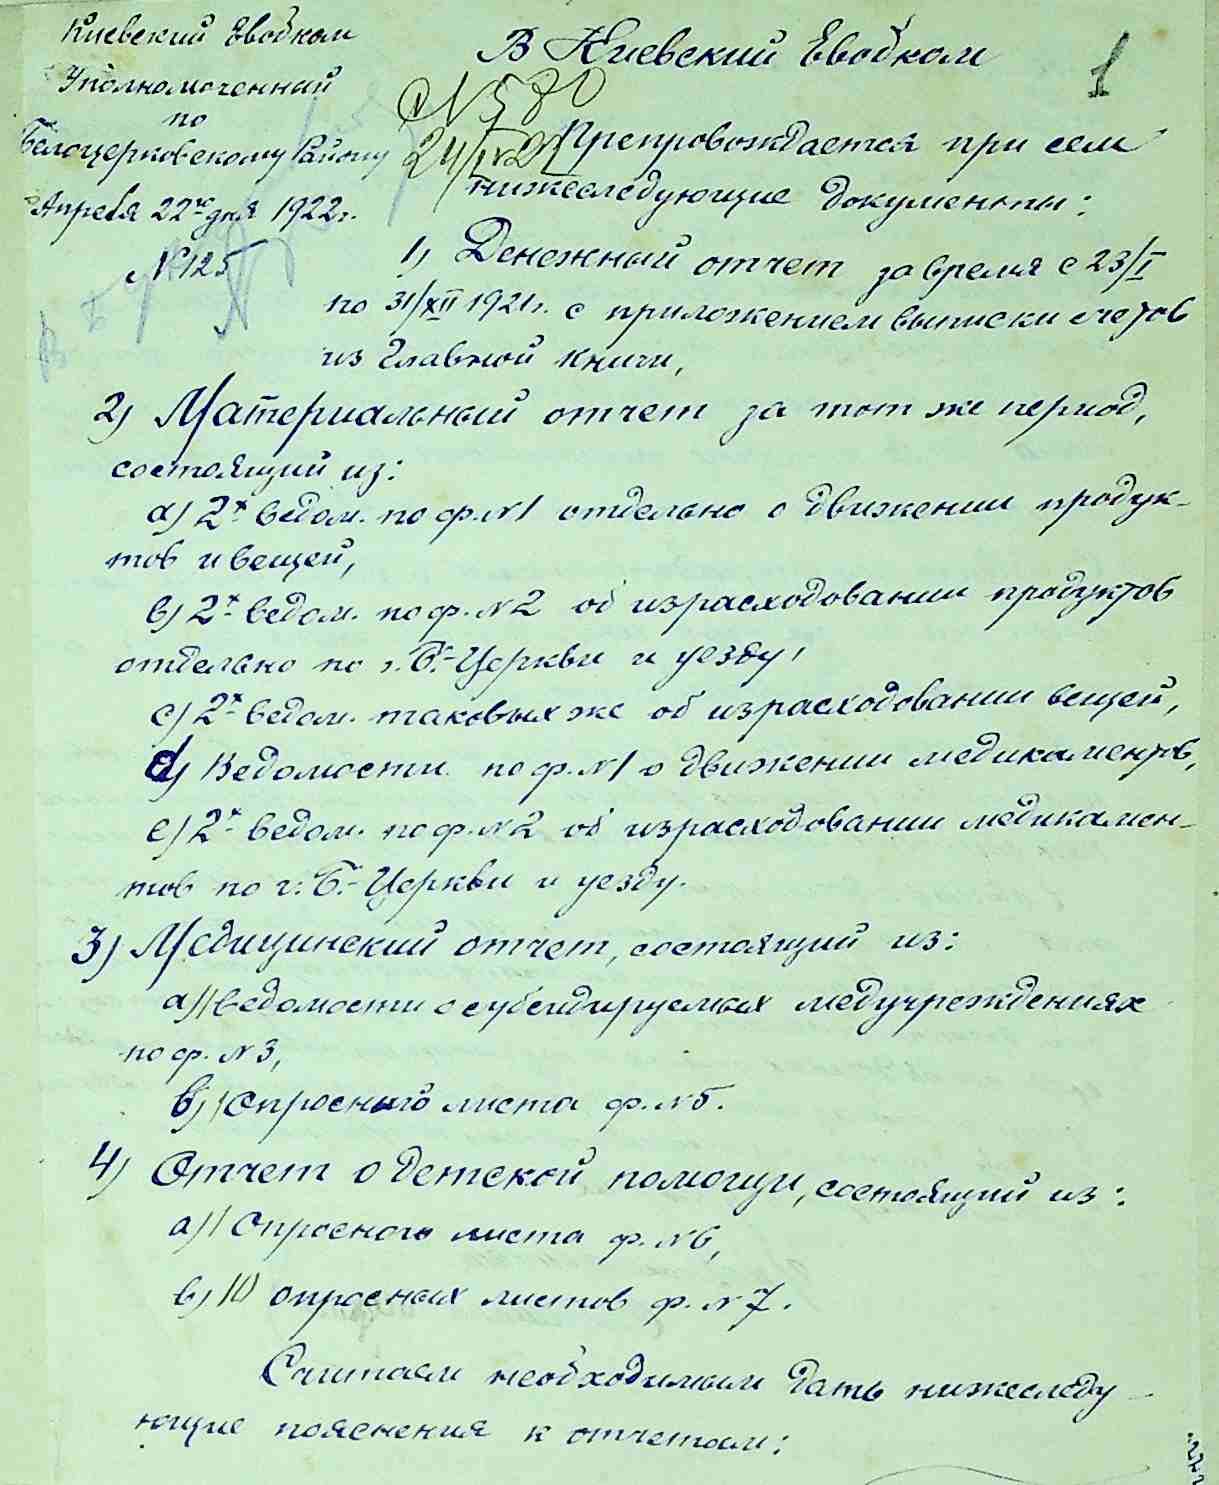 Киевский Евобком
Уполномоченный
по
Белоцерковскому Району
Апреля 22го дня 1922г.
№ 125
В Киевский Евобком
1
№ 580
24/IV 22
Препровождается при сем
нижеследующие документы:
1) Денежный отчет за время с 23/I
по 31/XII 1921г. с приложением выписки счетов
из Главной книги,
2) Материальный отчет за тот же период,
состоящий из:
а) 2х ведом. по ф. №1 отдельно о движении продук-
тов и вещей,
в) 2х ведом. по ф. №2 об израсходовании продуктов
отдельно по г. Б.-Церкви и уезду,
с) 2х ведом. таковых же об израсходовании вещей,
d) Ведомости по ф. №1 о движении медикаментов,
е) 2х ведом. по ф. №2 об израсходовании медикамен-
тов по г. Б.-Церкви и уезду.
3) Медицинский отчет, состоящий из:
а) 1 ведомости о субсидируемых медучреждениях
по ф. №3,
в) 1 Опросного листа ф. №5.
4) Отчет о детской помощи, состоящий из:
а) 1 Опросного листа ф. №6,
в) 10 опросных листов ф. №7.
Считаем необходимым дать нижеследу-
ющие пояснения к отчетам: